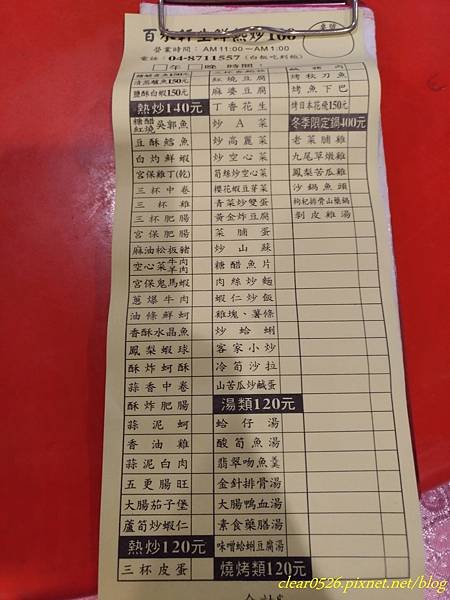 生鮮熱炒100
桌號
營業時間：AM11:00～AM1:00
電話：04-8711557(白飯吃到飽)
年 時間
150元
清蒸鱸魚150元
鹽酥白蝦150元
熱炒140元
糖醋 紅燒 吳郭魚
豆酥鱈魚
白灼鮮蝦
宮保雞丁(乾)
三杯中卷
三杯雞
三杯肥腸
宮保肥腸
麻油松板豬
空心菜 牛肉 羊肉
宮保鬼馬蝦
蔥爆牛肉
油條鮮蚵
香酥水晶魚
鳳梨蝦球
酥炸蚵酥
蒜香中卷
酥炸肥腸
蒜泥蚵
香油雞
蒜泥白肉
五更腸旺
大腸茄子堡
蘆筍炒蝦仁
熱炒120元
三杯皮蛋
紅燒豆腐
麻婆豆腐
丁香花生
炒A菜
炒高麗菜
炒空心菜
筍絲炒空心菜
櫻花蝦豆芽菜
青菜炒雙蛋
黃金炸豆腐
菜脯蛋
炒山蘇
糖醋魚片
肉絲炒麵
蝦仁炒飯
雞塊、薯條
炒蛤蜊
客家小炒
冷筍沙拉
山苦瓜炒鹹蛋
湯類120元
蛤仔湯
酸筍魚湯
翡翠吻魚羹
金針排骨湯
大腸鴨血湯
素食藥膳湯
味噌蛤蜊豆腐湯
燒烤類120元
烤秋刀魚
烤魚下巴
烤日本花魚150元
冬季限定鍋400元
老菜脯雞
九尾草燉雞
鳳梨苦瓜雞
沙鍋魚頭
枸杞排骨山藥鍋
剝皮雞湯
clear0526.pixnet.net/blog